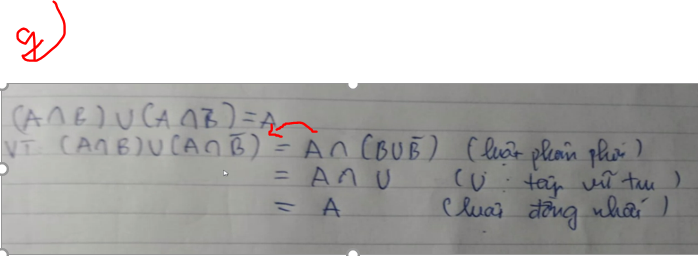 g)
(A∩B) ∪ (A∩B̄) = A
VT (A∩B)∪(A∩B̄) = A∩(B∪B̄) (luật phân phối)
= A∩U (U: tập vũ trụ)
= A (luật đồng nhất)